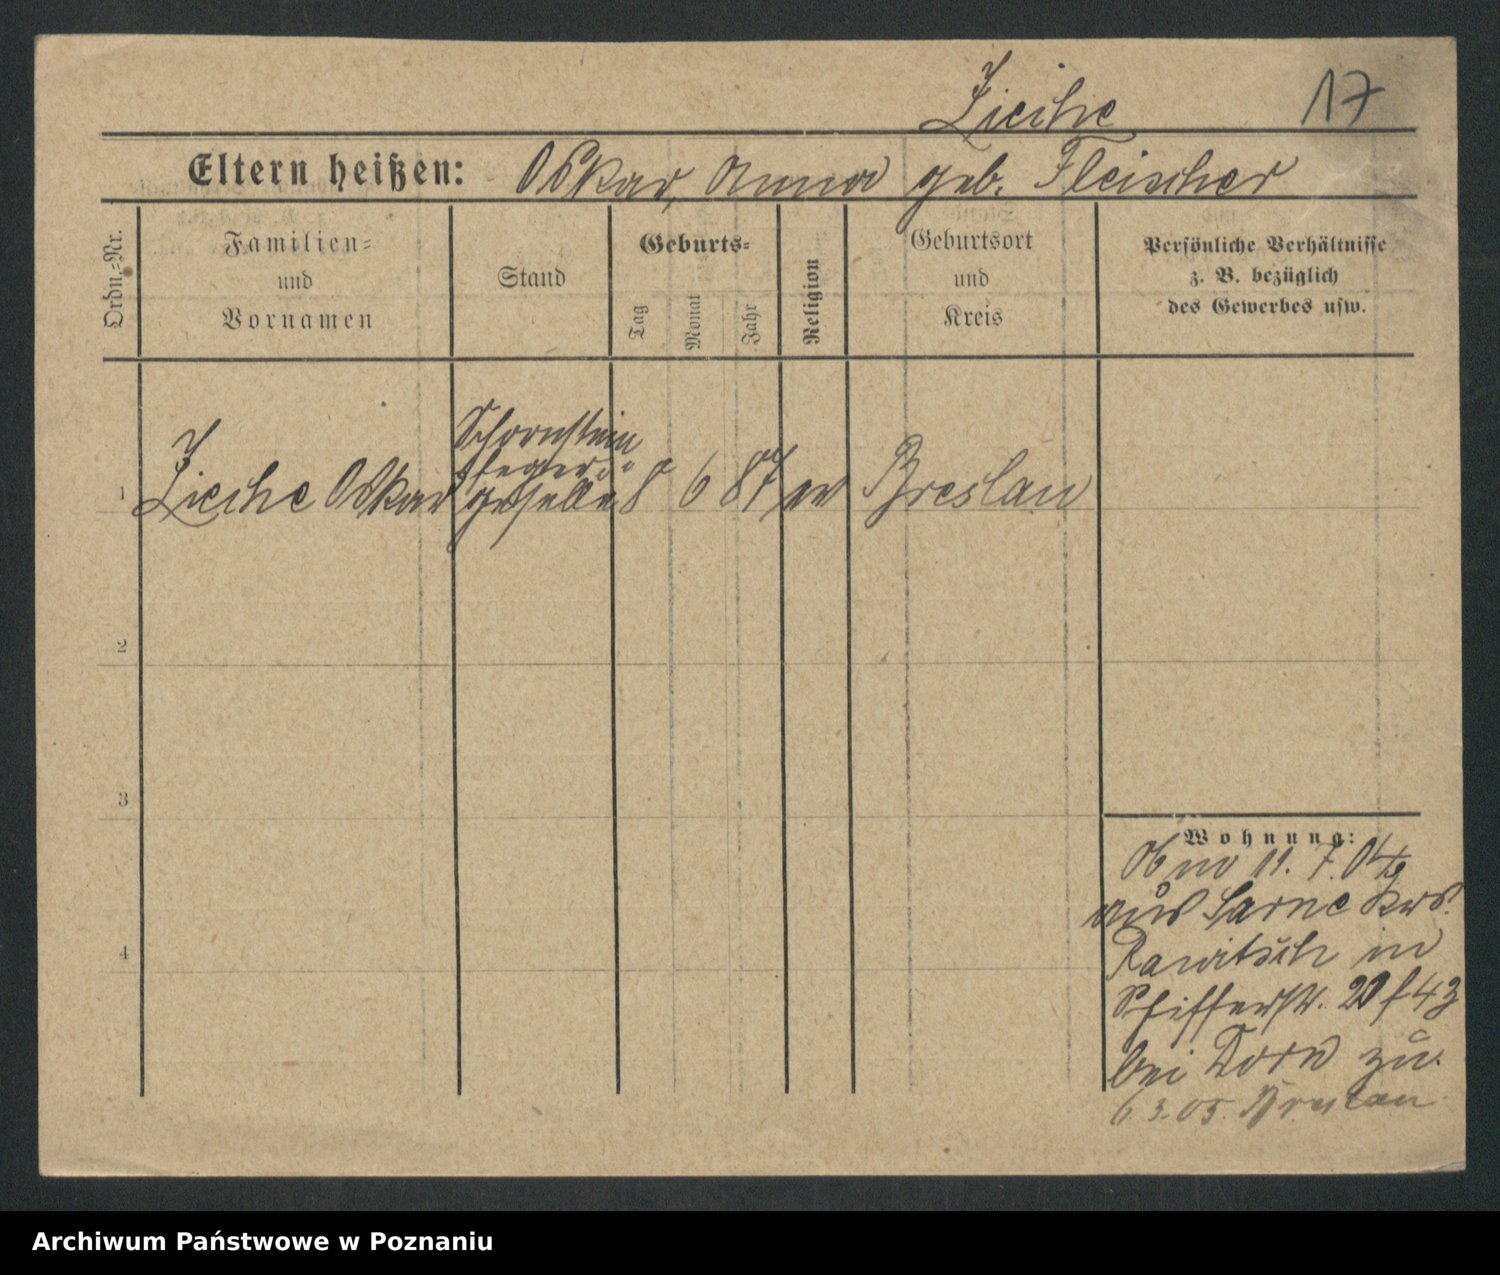 Zieche
17
Eltern heißen: Oskar, Anna geb. Fleischer
Ordn.-Nr.
Familien-
und
Vornamen
Stand
Geburts-
Tag
Monat
Jahr
Religion
Geburtsort
und
Kreis
Persönliche Verhältnisse
z. B. bezüglich
des Gewerbes usw.
Schornstein
feger
1 Zieche Oskar geselle 8 6 87 ev Breslau
2
3
4
Wohnung:
11. 7. 04
aus Sarne Krs.
Rawitsch in
bei zu.
6.3.05. Breslau
Archiwum Państwowe w Poznaniu